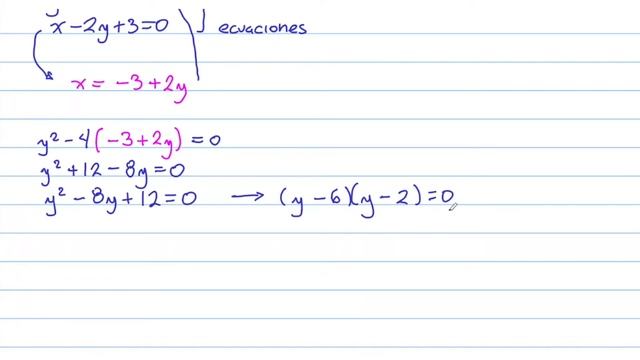 x - 2y + 3 = 0 ecuaciones
x = -3 + 2y
y² - 4(-3 + 2y) = 0
y² + 12 - 8y = 0
y² - 8y + 12 = 0 → (y - 6)(y - 2) = 0